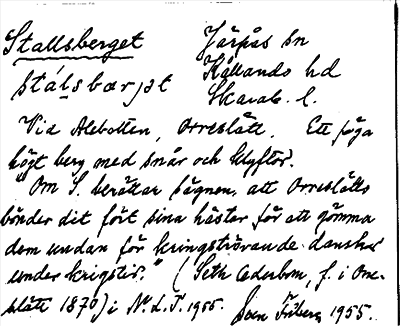 Stallsberget Järpås sn
stálsbærjet Kållands hd
Skarab. l.
Vid Alebotten, Orreslätt. Ett föga
högt berg med snår och klyftor.
"Om S. berättar sägnen, att Orreslätts
bönder dit fört sina hästar för att gömma
dem undan för kringströvande danskar
under krigstid." (Seth Cederbom, f. i Orre-
slätt 1870) i N. L. T. 1955. Sven Friberg 1955.